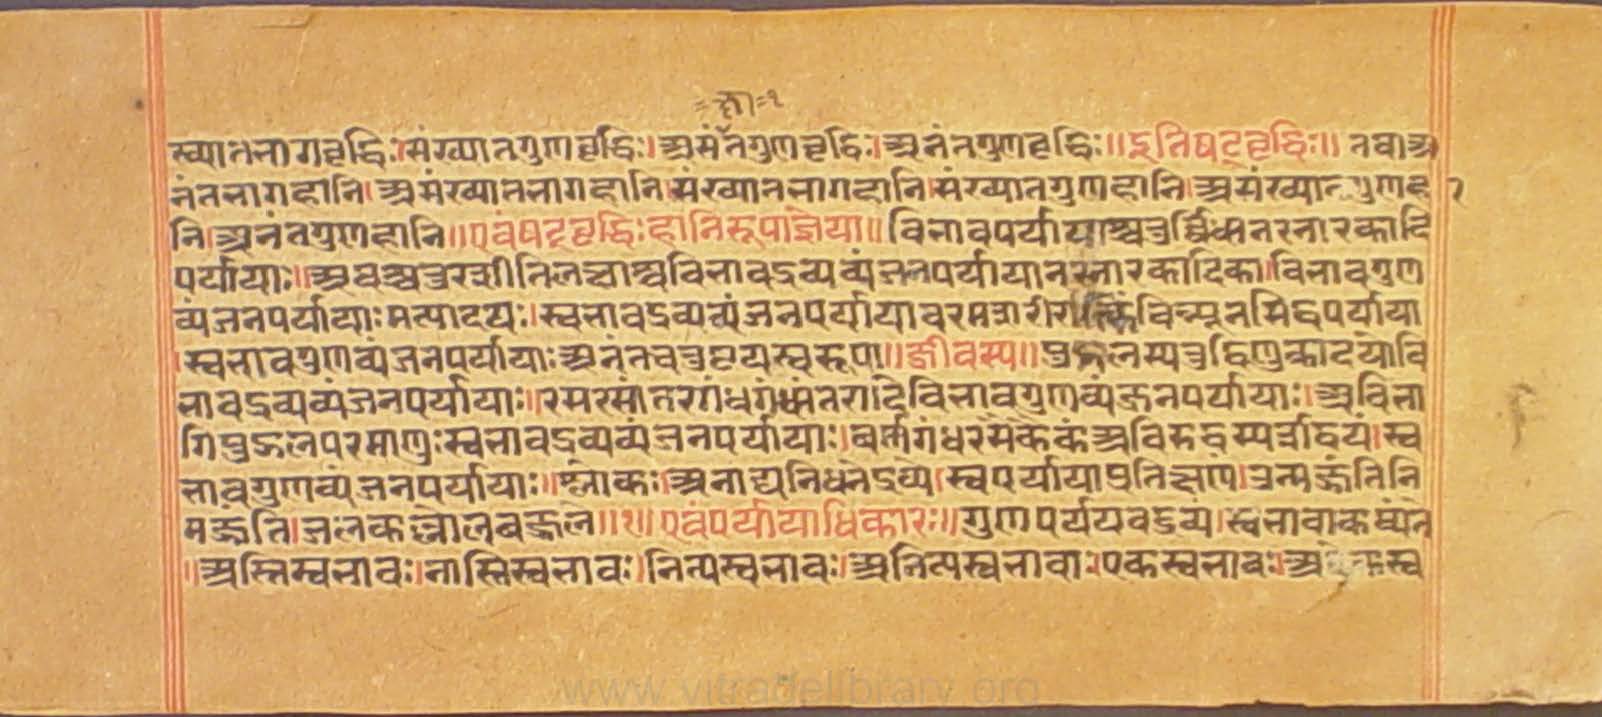 =क्षा=१
ख्यातभागवृद्धिः।संख्यातगुणवृद्धिः।असंतगुणवृद्धिः।अनंतगुणवृद्धिः॥इतिषट्वृद्धिः॥तथाअ
नंतभागहानि।असंख्यातभागहानि।संख्यातभागहानि।संख्यातगुणहानि।असंख्यातगुणहा
नि।अनंतगुणहानि॥एवंषट्वृद्धिःहानिरूपाज्ञेया॥विभावपर्यायाश्चतुर्विधानरनारकादि
पर्यायाः॥अथवचतुरशीतिलक्षाश्चविभावद्रव्यव्यंजनपर्यायानरनारकादिका।विभावगुण
व्यंजनपर्यायाःमत्यादयः।स्वभावद्रव्यव्यंजनपर्यायाचरमशरीरात्किंचिन्यूनसिद्धपर्याया
।स्वभावगुणव्यंजनपर्यायाःअनंतचतुष्टयस्वरूपा॥जीवस्य॥पुद्गलस्यतुद्विणुकादयोवि
भावद्रव्यव्यंजनपर्यायाः॥रसरसांतरगंधगंधांतरादिविभावगुणव्यंजनपर्यायाः।अविभा
गिपुद्गलपरमाणुःस्वभावद्रव्यव्यंजनपर्यायाः।वर्णगंधरसैकैकंअविरुद्धस्पर्शद्वियं।स्व
भावगुणव्यंजनपर्यायाः॥श्लोकः।अनाद्यनिधनेद्रव्ये।स्वपर्यायाप्रतिक्षणं।उन्मज्जंतिनि
मज्जंति।जलकल्लोलवज्जले॥१॥एवंपर्यायाधिकारः॥गुणपर्ययवद्रव्यं।स्वभावाकथ्यंते
॥अस्तिस्वभावः।नास्तिस्वभावः।नित्यस्वभावः।अनित्यस्वभावा।एकस्वभावः।अनेकस्व
www.vitragelibrary.org